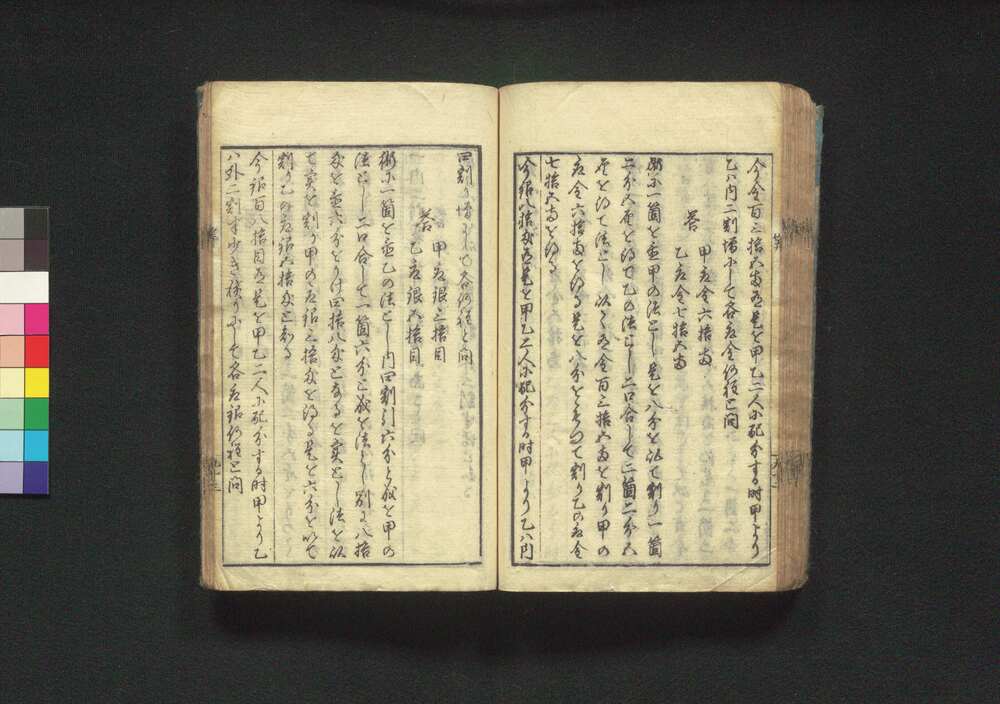 今金百三拾五両有是を甲乙二人に配分する時甲より
乙ハ内二割増にして各若金何程と問
答 甲若金六拾両
乙若金七拾五両
術に一箇を置甲の法とし是を八分を以て割り一箇
二分五厘を得て乙の法とし二口合して二箇二分五
厘を得て法とし以て有金百三拾五両を割り甲の
若金六拾両を得る是を八分をもつて割り乙の若金
七拾五両を得る
今銀八拾目有是を甲乙二人に配分する時甲より乙ハ内
四割り増にして各何程と問
答 甲若銀三拾目
乙若銀五拾目
術に一箇を置乙の法とし内四割引六分と成を甲の
法とし二口合して一箇六分と成を法とし別に八拾
目を置六分をかけ四拾八匁となるを実とし法を以
て実を割り甲の若銀三拾匁を得る是を六分を以て
割り乙の若銀五拾匁と知る
今銀百八拾目有是を甲乙二人に配分する時甲より乙
ハ外二割半少き様にして各若銀何程と問